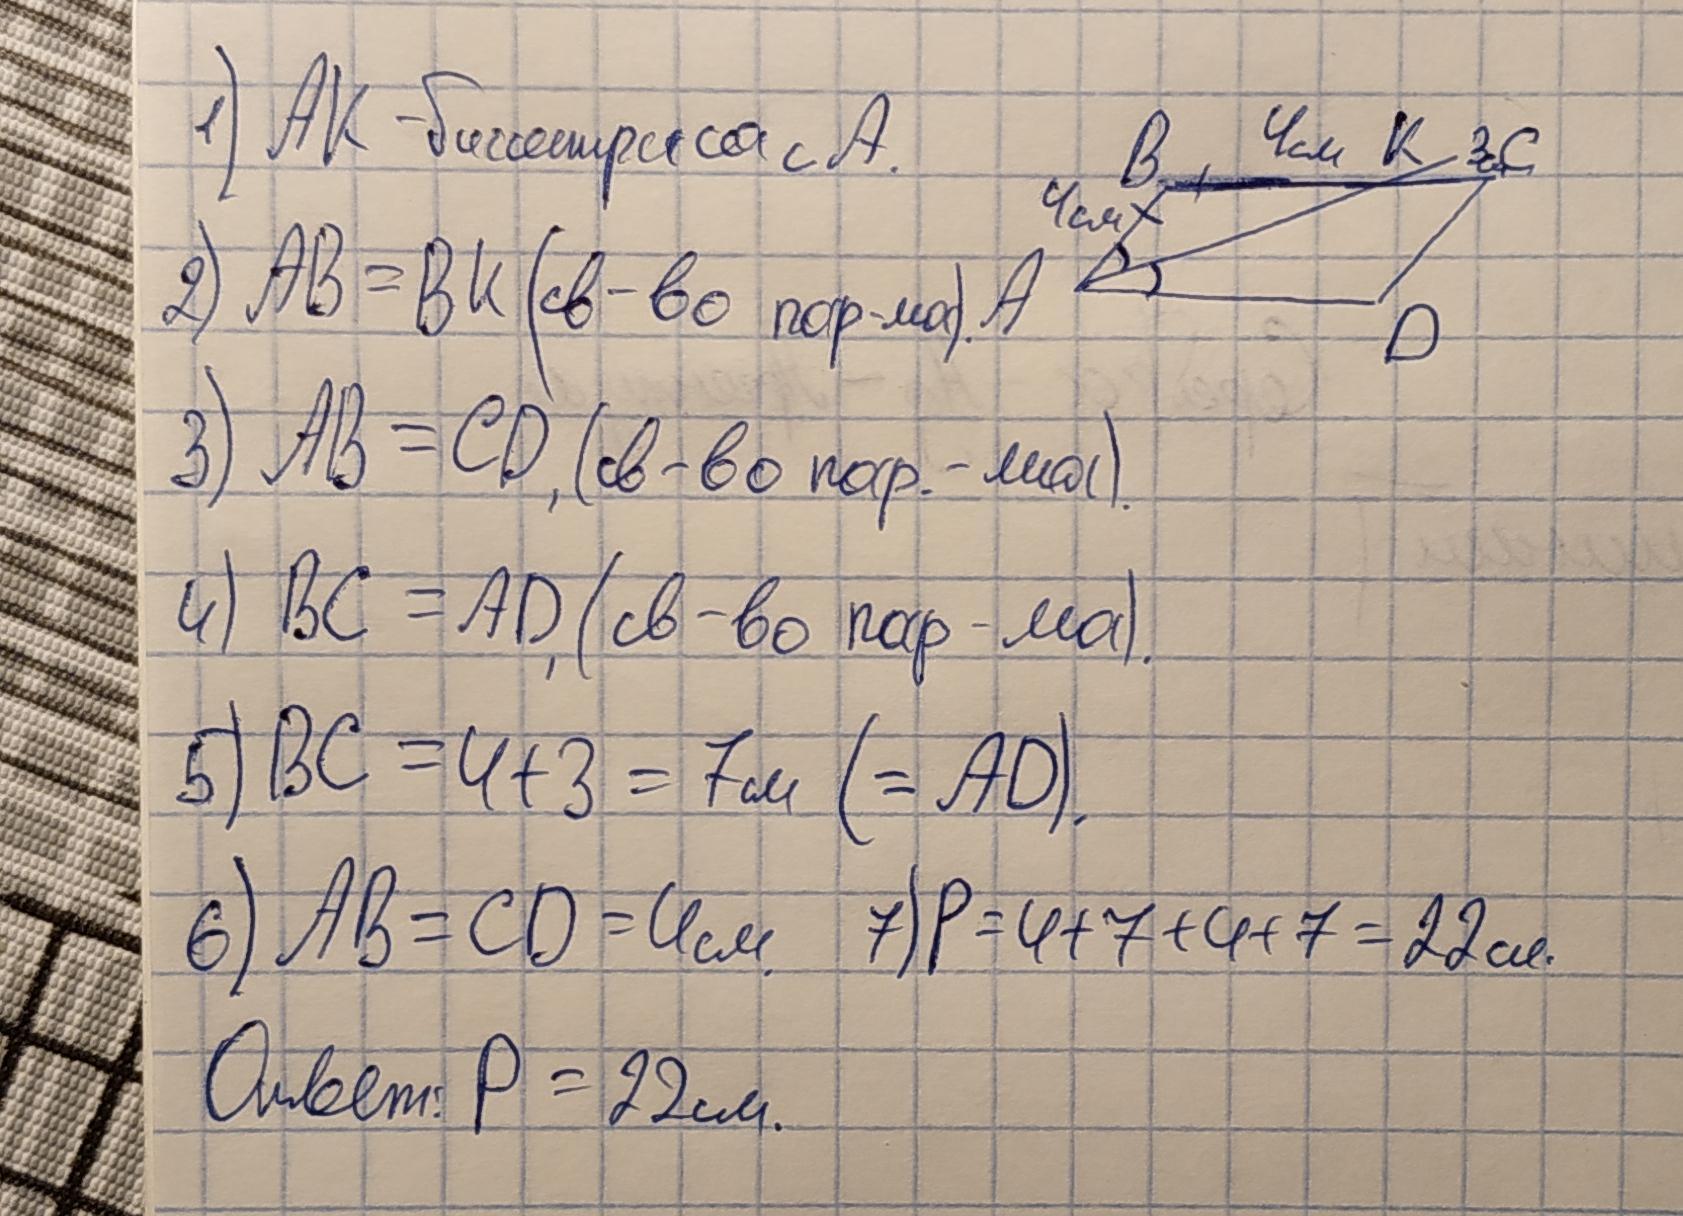 1) AK - биссектриса с A.
2) AB = BK (св-во пар-ма).
3) AB = CD, (св-во пар.-ма).
4) BC = AD, (св-во пар-ма).
5) BC = 4+3 = 7см (= AD).
6) AB = CD = 4см. 7) P = 4+7+4+7 = 22см.
Ответ: P = 22см.
B 4см K 3см C
4см
A
D